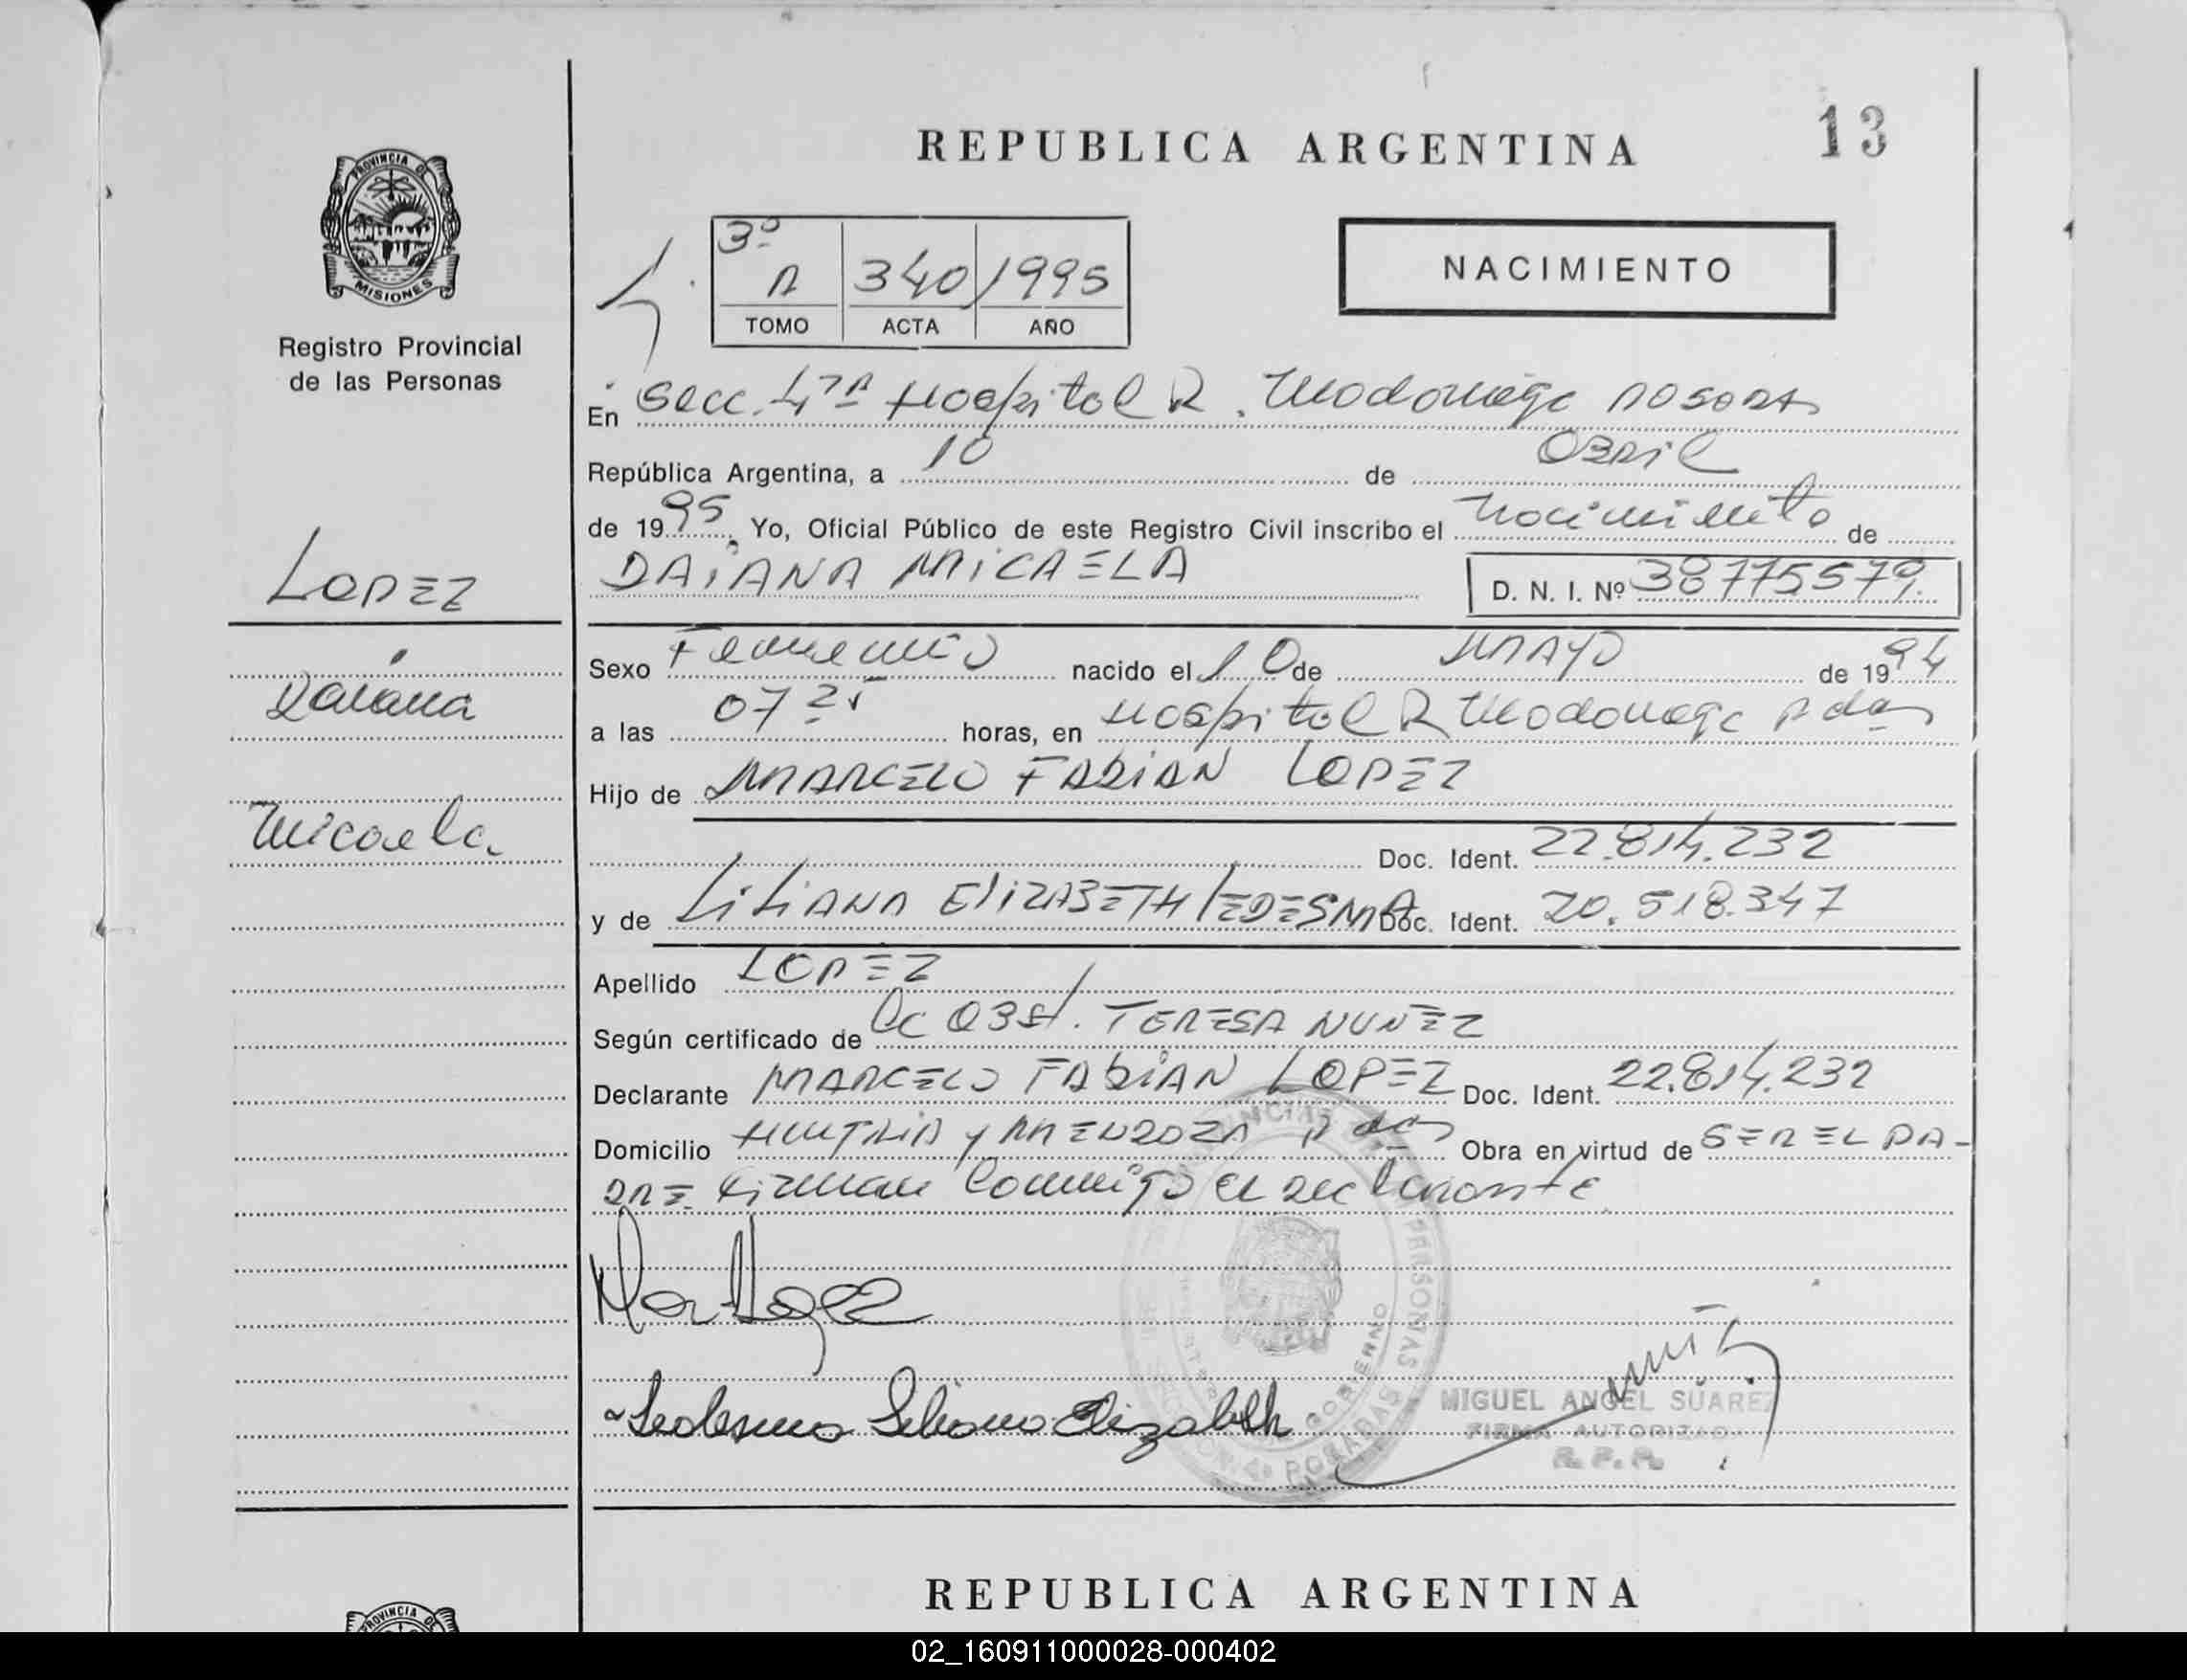 REPUBLICA ARGENTINA
13
PROVINCIA DE
MISIONES
Registro Provincial
de las Personas
3º
A 340 1995
TOMO ACTA AÑO
NACIMIENTO
En Secc. 4ta Hospital R. Madariaga Posadas
República Argentina, a 10 de Abril
de 1995, Yo, Oficial Público de este Registro Civil inscribo el Nacimiento de
DAIANA MICAELA
D. N. I. Nº 38775579
LOPEZ
Daiana
Micaela
Sexo Femenino nacido el 10 de MAYO de 1994
a las 07 25 horas, en Hospital R Madariaga Pdas
Hijo de MARCELO FABIAN LOPEZ
Doc. Ident. 22.814.232
y de LILIANA ELIZABETH LEDESMA Doc. Ident. 20.518.347
Apellido LOPEZ
Según certificado de la Obst. TERESA NUÑEZ
Declarante MARCELO FABIAN LOPEZ Doc. Ident. 22.814.232
Domicilio y MENDOZA Pdas Obra en virtud de SER EL PA-
DRE Firman conmigo el declarante
Mar Lopez
Ledesma Liliana Elizabeth
PERSONAS
GOBIERNO
POSADAS
MIGUEL ANGEL SUAREZ
FIRMA AUTORIZADA
R. P. P.
REPUBLICA ARGENTINA
PROVINCIA DE
02_160911000028-000402